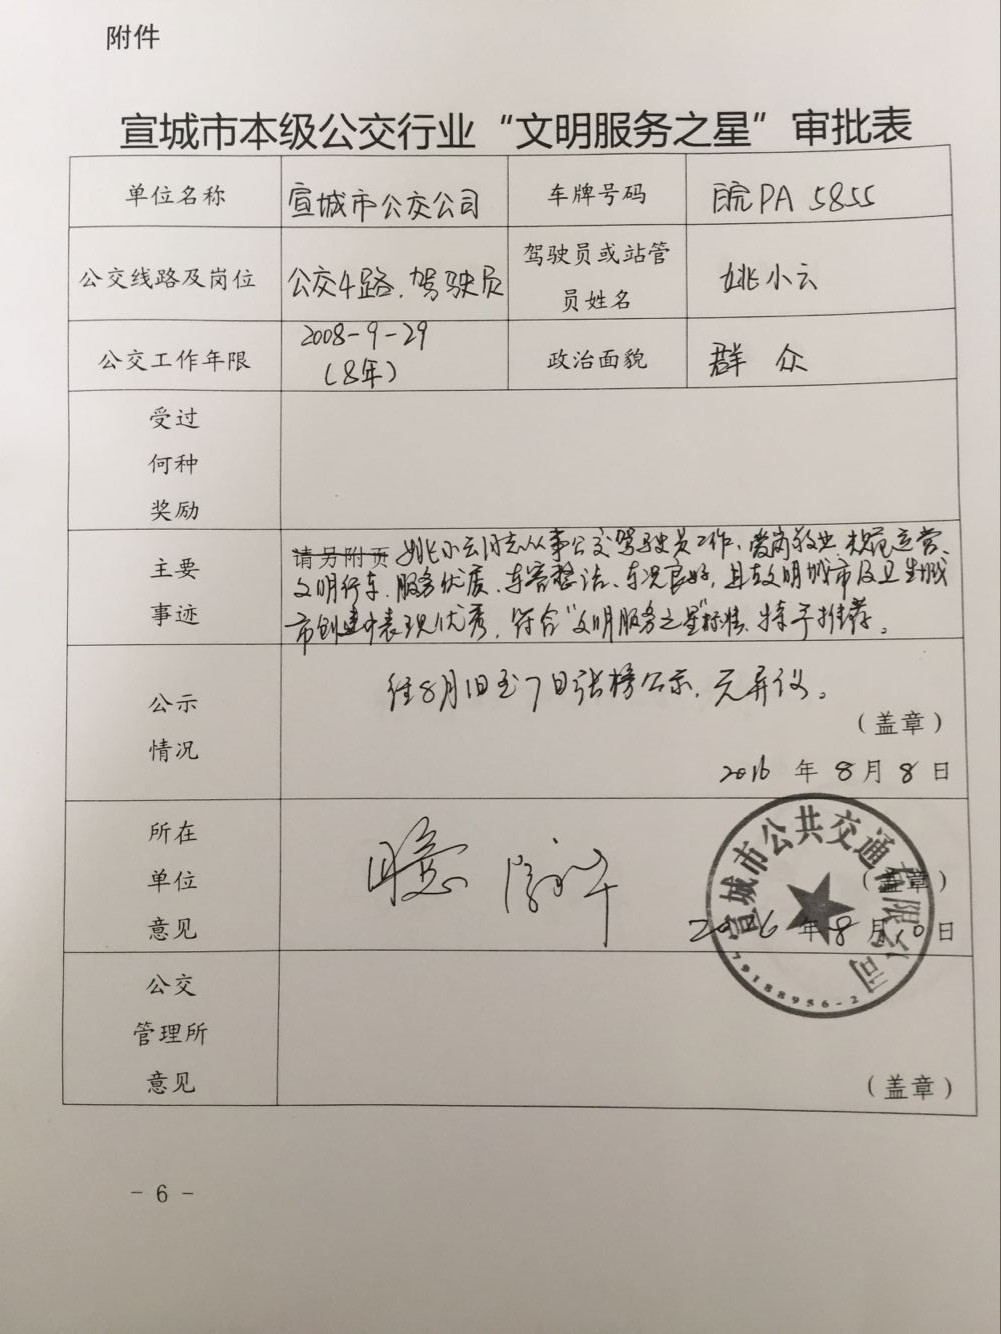 附件
宣城市本级公交行业“文明服务之星”审批表
单位名称 宣城市公交公司 车牌号码 皖PA 5855
公交线路及岗位 公交4路、驾驶员 驾驶员或站管员姓名 姚小云
公交工作年限 2008-9-29 (8年) 政治面貌 群众
受过
何种
奖励
主要
事迹
请另附页 姚小云同志从事公交驾驶员工作、爱岗敬业、规范运营、
文明行车、服务优质、车容整洁、车况良好,且在文明城市及卫生城
市创建中表现优秀,符合“文明服务之星”标准、特予推荐。
公示
情况
经8月1日至7日张榜公示,无异议。
(盖章)
2016 年 8 月 8 日
所在
单位
意见
同意
(盖章)
2016 年 8 月 10 日
宣城市公共交通有限公司
公交
管理所
意见
(盖章)
- 6 -